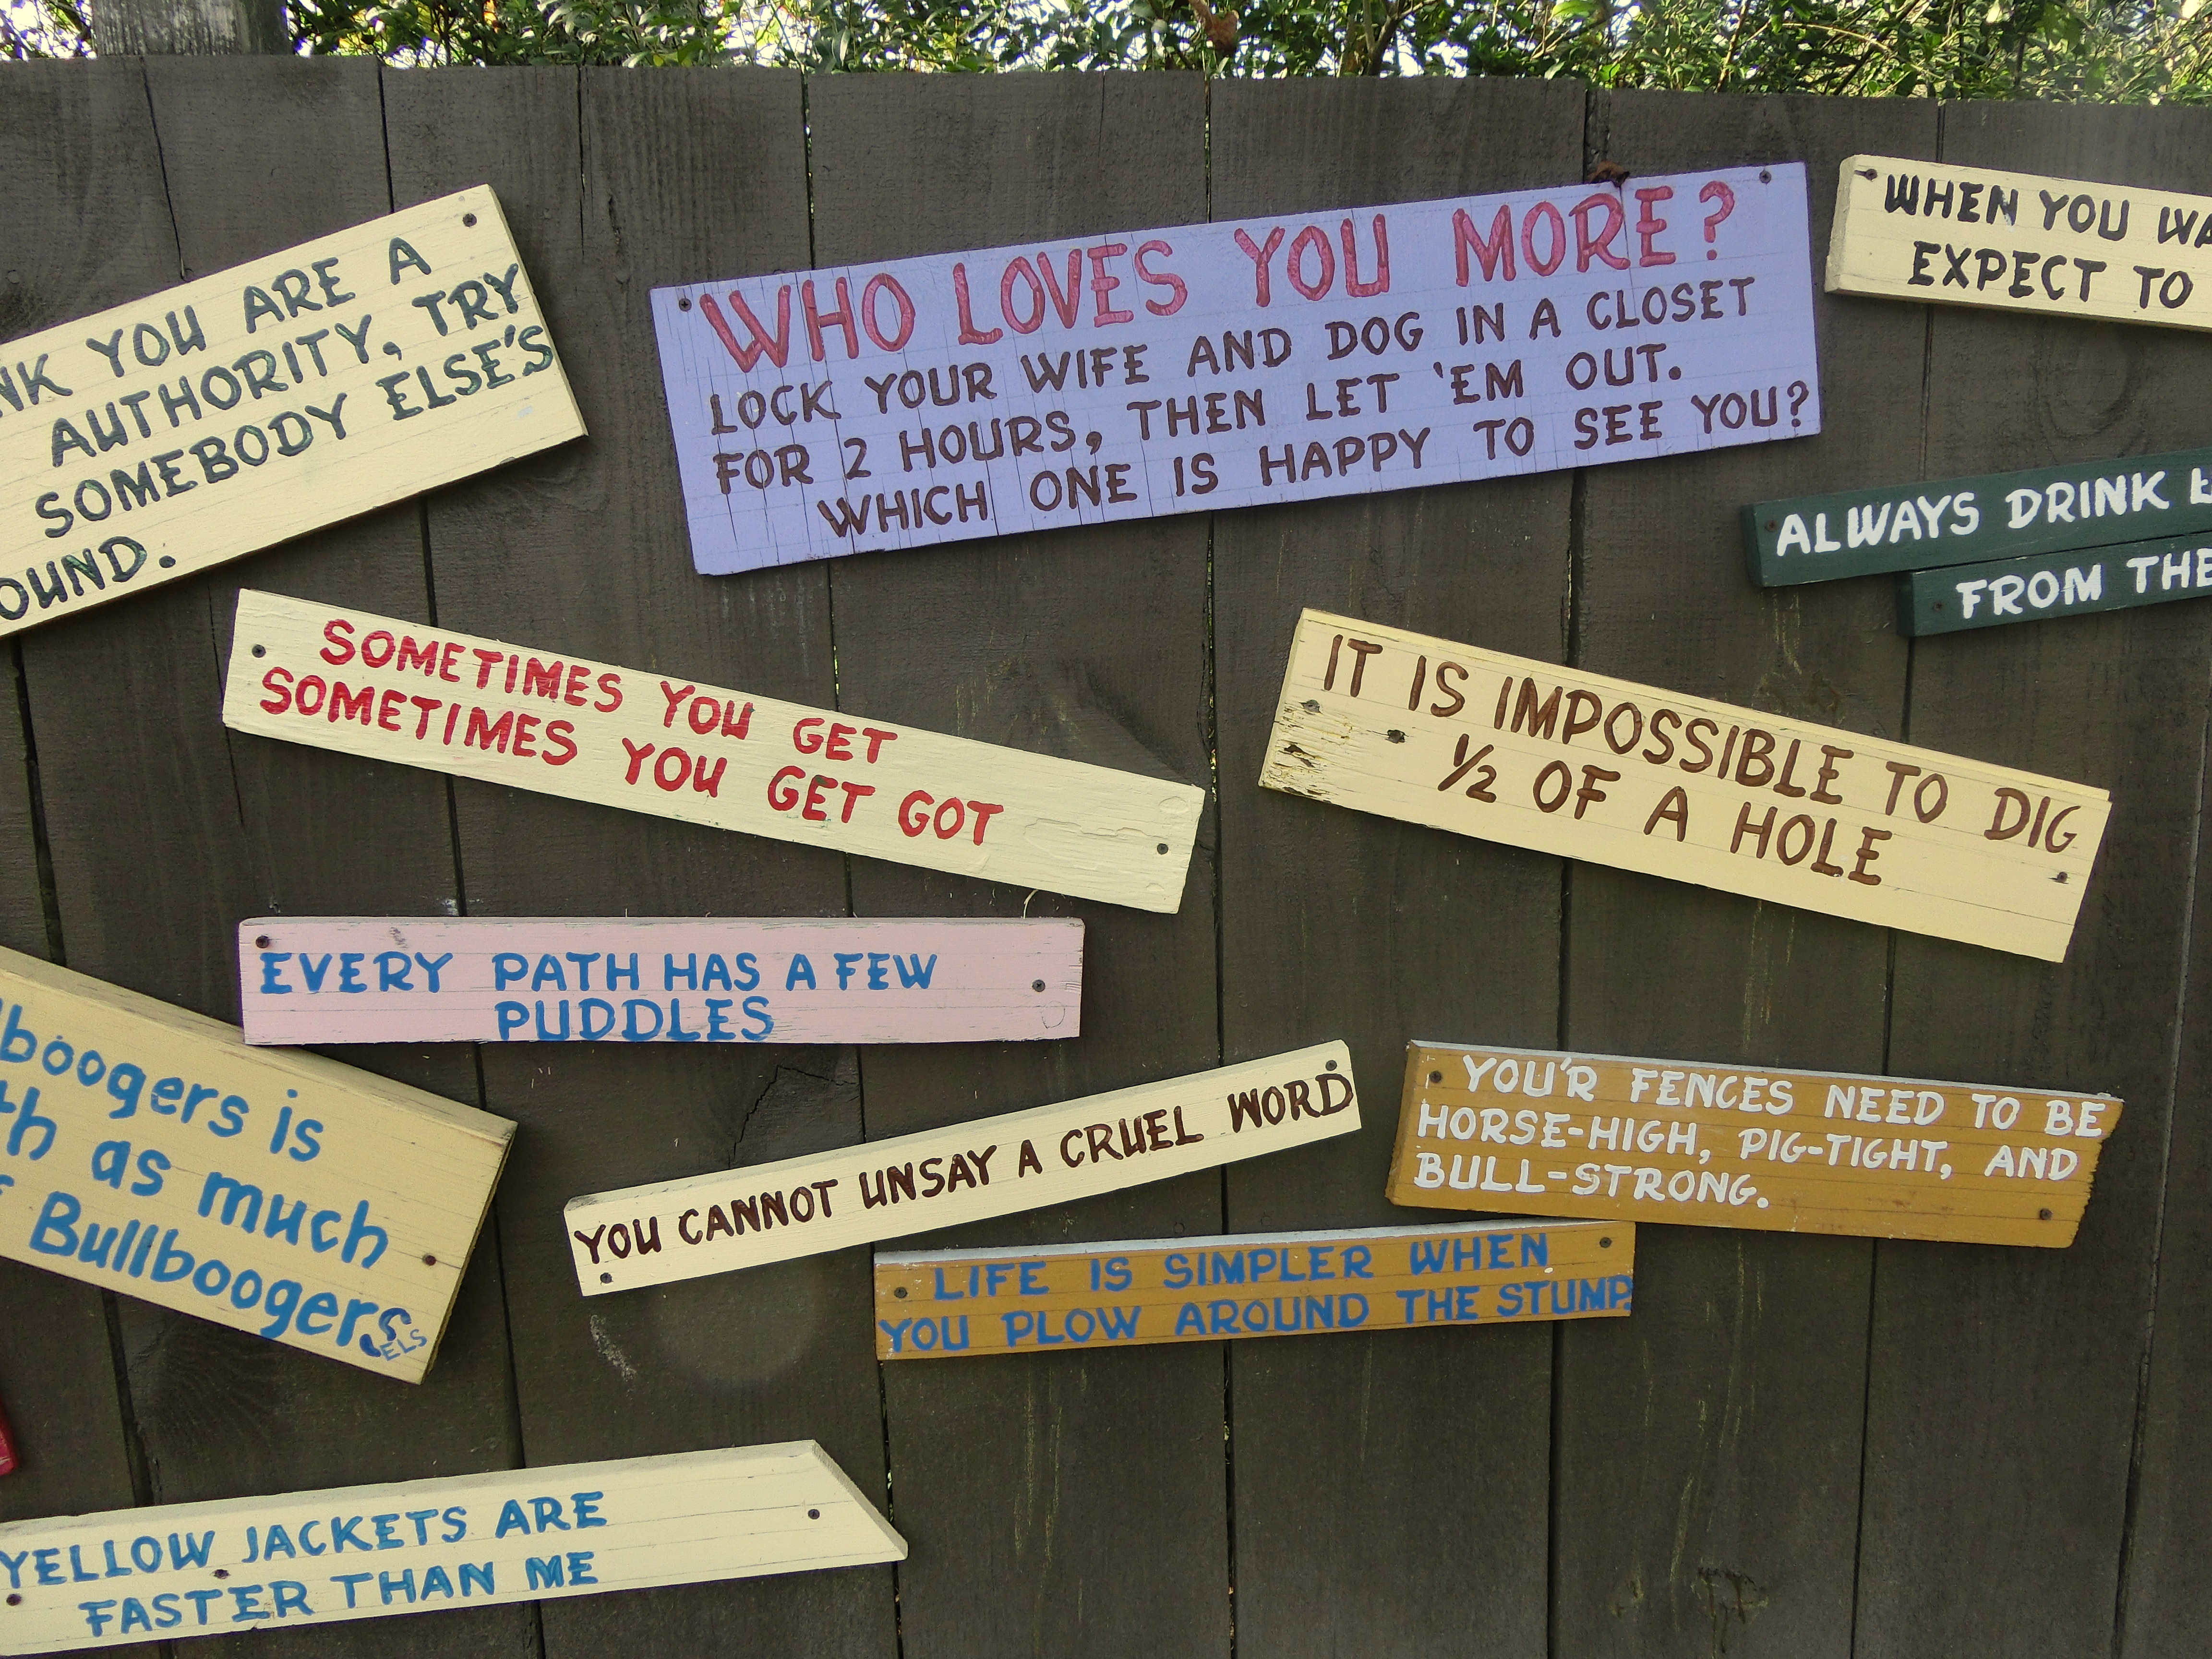 YOU ARE A
AUTHORITY, TRY
SOMEBODY ELSE'S
WHO LOVES YOU MORE?
LOCK YOUR WIFE AND DOG IN A CLOSET
FOR 2 HOURS, THEN LET 'EM OUT.
WHICH ONE IS HAPPY TO SEE YOU?
WHEN YOU
EXPECT TO
ALWAYS DRINK
FROM THE
SOMETIMES YOU GET
SOMETIMES YOU GET GOT
IT IS IMPOSSIBLE TO DIG
1/2 OF A HOLE
EVERY PATH HAS A FEW
PUDDLES
is
as much
Bullboogers
ELS
YOU CANNOT UNSAY A CRUEL WORD
YOU'R FENCES NEED TO BE
HORSE-HIGH, PIG-TIGHT, AND
BULL-STRONG.
LIFE IS SIMPLER WHEN
YOU PLOW AROUND THE STUMP.
YELLOW JACKETS ARE
FASTER THAN ME